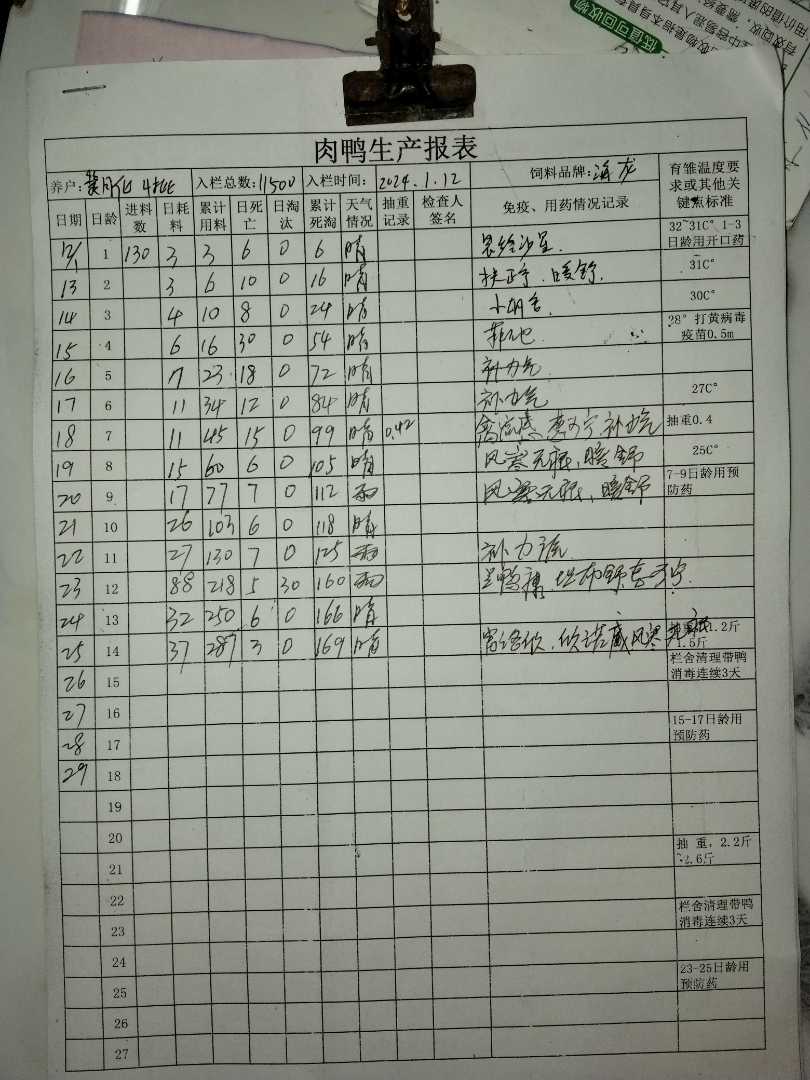 低值可回收物
肉鸭生产报表
养户: 入栏总数:11500 入栏时间: 2024.1.12 饲料品牌:海龙 育雏温度要求或其他关键点标准
日期 日龄 进料数 日耗料 累计用料 日死亡 日淘汰 累计死淘 天气情况 抽重记录 检查人签名 免疫、用药情况记录
12/1 1 130 3 3 6 0 6 晴 32~31C° 1-3日龄用开口药
13 2 3 6 10 0 16 晴 扶正 暖舒 31C°
14 3 4 10 8 0 24 晴 30C°
15 4 6 16 30 0 54 晴 28° 打黄病毒疫苗0.5m
16 5 7 23 18 0 72 晴 补力气
17 6 11 34 12 0 84 晴 补力气 27C°
18 7 11 45 15 0 99 晴 0.42 禽流感 补力气 抽重0.4
19 8 15 60 6 0 105 晴 风寒 暖舒 25C°
20 9 17 77 7 0 112 雨 风寒 暖舒 7-9日龄用预防药
21 10 26 103 6 0 118 晴
22 11 27 130 7 0 125 雨 补力
23 12 88 218 5 30 160 雨
24 13 32 250 6 0 166 晴
25 14 37 287 3 0 169 晴 风寒 1.2斤 1.5斤
26 15 栏舍清理带鸭消毒连续3天
27 16
28 17 15-17日龄用预防药
29 18
19
20
21 抽 重，2.2斤-2.6斤
22
23 栏舍清理带鸭消毒连续3天
24
25 23-25日龄用预防药
26
27